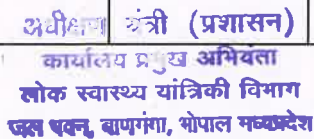 अधीक्षण यंत्री (प्रशासन)
कार्यालय प्रमुख अभियंता
लोक स्वास्थ्य यांत्रिकी विभाग
जल भवन, बाणगंगा, भोपाल मध्यप्रदेश